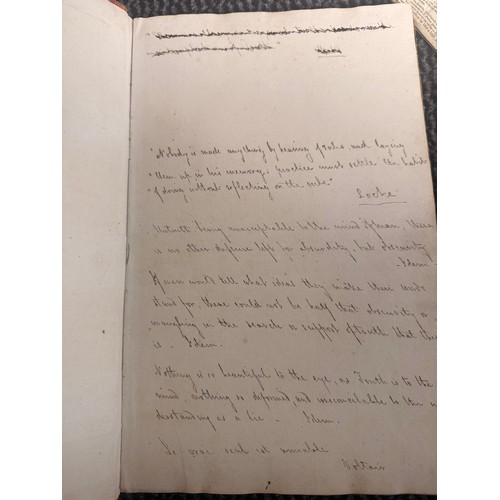 "Nobody is made anything by hearing of rules, and laying
"them up in his memory; practice must settle the habit
"of doing without reflecting on the rule."
Locke
Untruth being unacceptable to the mind of man, there
is no other defence left for absurdity, but obscurity
- Idem
If men would tell what ideas they make their words
stand for, there could not be half that obscurity or
wrangling in the search or support of truth that there
is - Idem.
Nothing is so beautiful to the eye, as Truth is to the
mind, nothing so deformed and irreconcilable to the un
derstanding as a lie - Idem.
Le vrai seul est aimable
Voltair